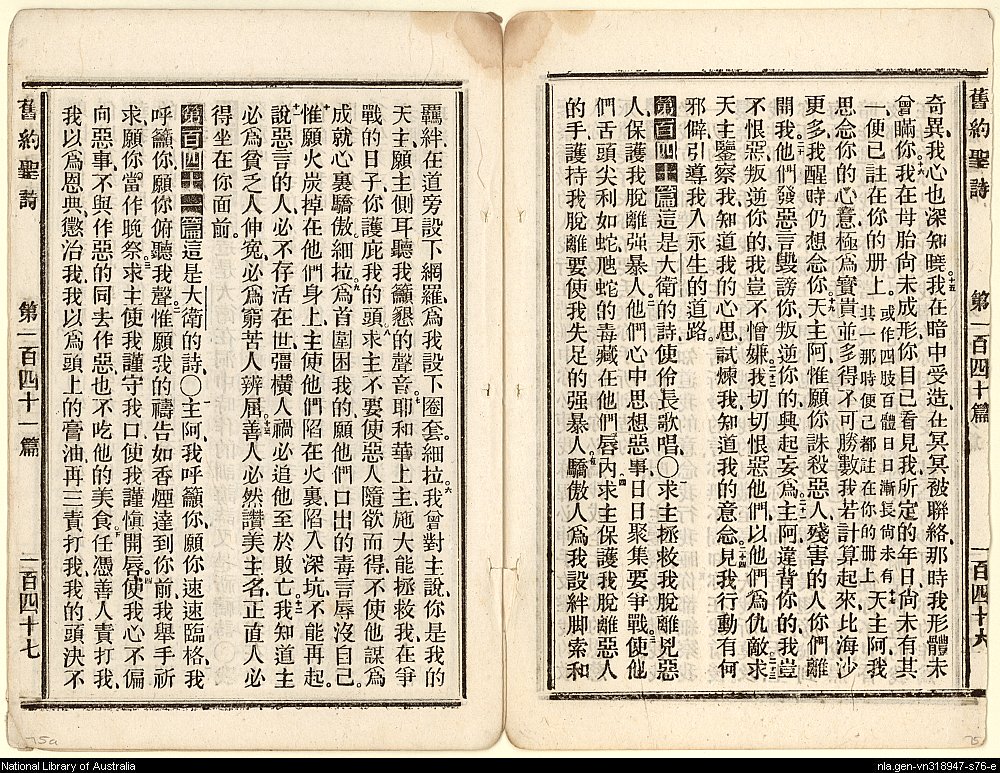 舊約聖詩 第一百四十篇 一百四十六
奇異我心也深知曉我在暗中受造在冥冥被聯絡那時我形體未
曾瞞你我在母胎尚未成形你目已看見我所定的年日尚未有其
一便已註在你的册上或作四肢百體日日漸長尚未有其一那時便已都註在你的册上天主阿我
思念你的心意極爲寶貴並多得不可勝數我若計算起來比海沙
更多我醒時仍想念你天主阿惟願你誅殺惡人殘害的人你們離
開我他們發惡言毀謗你叛逆你的興起妄爲主阿違背你的我豈
不恨惡叛逆你的我豈不憎嫌我切切恨惡他們以他們爲仇敵求
天主鑒察我知道我的心思試煉我知道我的意念見我行動有何
邪僻引導我入永生的道路
第百四十篇這是大衛的詩使伶長歌唱〇求主拯救我脫離兇惡
人保護我脫離强暴人他們心中思想惡事日日聚集要爭戰使他
們舌頭尖利如蛇虺蛇的毒藏在他們唇内求主保護我脫離惡人
的手護持我脫離要使我失足的强暴人驕傲人爲我設絆脚索和
羈絆在道旁設下網羅爲我設下圈套細拉我曾對主說你是我的
天主願主側耳聽我籲懇的聲音耶和華上主施大能拯救我在爭
戰的日子你護庇我的頭求主不要使惡人隨欲而得不使他謀爲
成就心裏驕傲細拉爲首圍困我的願他們口出的毒言辱沒自己
惟願火炭掉在他們身上主使他們陷在火裏陷入深坑不能再起
說惡言的人必不存活在世彊橫人禍必追他至於敗亡我知道主
必爲貧乏人伸寃必爲窮苦人辨屈善人必然讚美主名正直人必
得坐在你面前
第百四十一篇這是大衛的詩〇主阿我呼籲你願你速速臨格我
呼籲你願你俯聽我聲惟願我的禱告如香煙達到你前我舉手祈
求願你當作晚祭求主使我謹守我口使我謹愼開唇使我心不偏
向惡事不與作惡的同去作惡也不吃他的美食任憑善人責打我
我以爲恩典懲治我我以爲頭上的膏油再三責打我我的頭決不
舊約聖詩 第一百四十一篇 一百四十七
75a
75
National Library of Australia
nla.gen-vn318947-s76-e